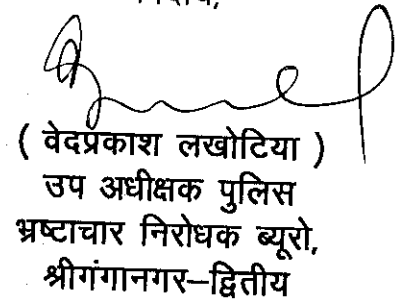 ( वेदप्रकाश लखोटिया )
उप अधीक्षक पुलिस
भ्रष्टाचार निरोधक ब्यूरो,
श्रीगंगानगर–द्वितीय